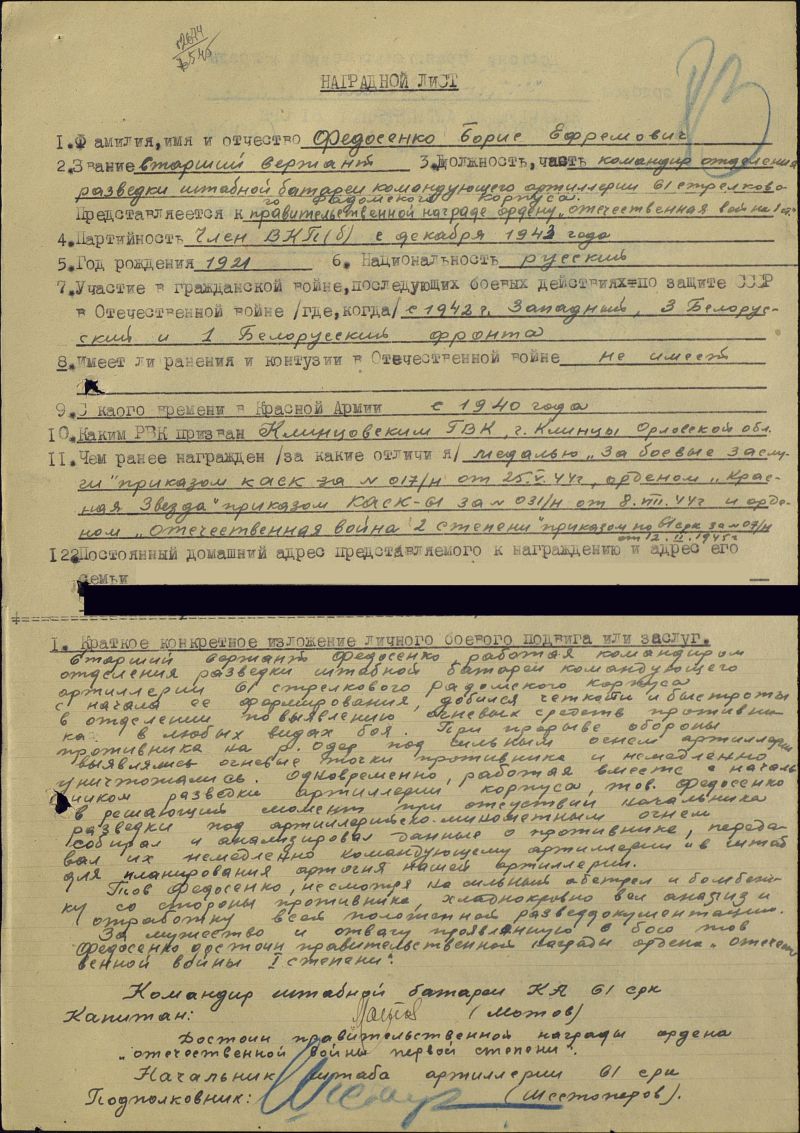 НАГРАДНОЙ ЛИСТ
1. Фамилия, имя и отчество Федосенко Борис Ефремович
2. Звание старший сержант 3. Должность, часть командир отделения
разведки штабной батареи командующего артиллерии 61 стрелково-
го Радомского корпуса.
Представляеется к правительственной награде ордену "отечественная война I ст."
4. Партийность Член ВКП(б) с декабря 1943 года
5. Год рождения 1921 6. Национальность русский
7. Участие в гражданской войне, последующих боевых действиях по защите СССР
в Отечественной войне /где, когда/ с 1942 г. Западный, 3 Белорус-
ский и 1 Белорусский фронта
8. Имеет ли ранения и контузии в Отечественной войне не имеет
9. С каого времени в Красной Армии с 1940 года
10. Каким РВК призван Клинцовским ГВК, г. Клинцы Орловской обл.
11. Чем ранее награжден /за какие отличия/ медалью "За боевые заслу-
ги" приказом КАСК за № 017/н от 25.V.44г, орденом "Крас-
ная Звезда" приказом КАСК-61 за № 031/н от 8.VIII.44г и орде-
ном "отечественная война 2 степени" приказом по 61 срк за № 09/н
от 12.II.1945г
122. Постоянный домашний адрес представляемого к награждению и адрес его
семьи
I. Краткое конкретное изложение личного боевого подвига или заслуг.
Старший сержант Федосенко работая командиром
отделения разведки штабной батареи командующего
артиллерии 61 стрелкового Радомского корпуса
с начала ее формирования, добился четкости и быстроты
в отделении по выявлению огневых средств противни-
ка в любых видах боя. При прорыве обороны
противника на р. Одер под сильным огнем артиллерии
выявлялись огневые точки противника и немедленно
уничтожались. Одновременно, работая вместе с началь-
ником разведки артиллерии корпуса, тов. Федосенко
в решающий момент при отсуствии начальника
разведки под артиллерийско-минометным огнем
собирал и анализировал данные о противнике, переда-
вал их немедленно командующему артиллерии и в штаб
для планирования артогня нашей артиллерии.
Тов Федосенко, несмотря на сильный обстрел и бомбеж-
ку со стороны противника, хладнокровно вел анализ и
отработку всей положенной разведдокументации.
За мужество и отвагу проявленную в бою тов
Федосенко достоин правительственной награды ордена "отечест-
венной войны I степени".
Командир штабной батареи КА 61 срк
Капитан: (Мотов)
Достоин правительственной награды ордена
"отечественной войны первой степени".
Начальник штаба артиллерии 61 срк
Подполковник: (Шестоперов).